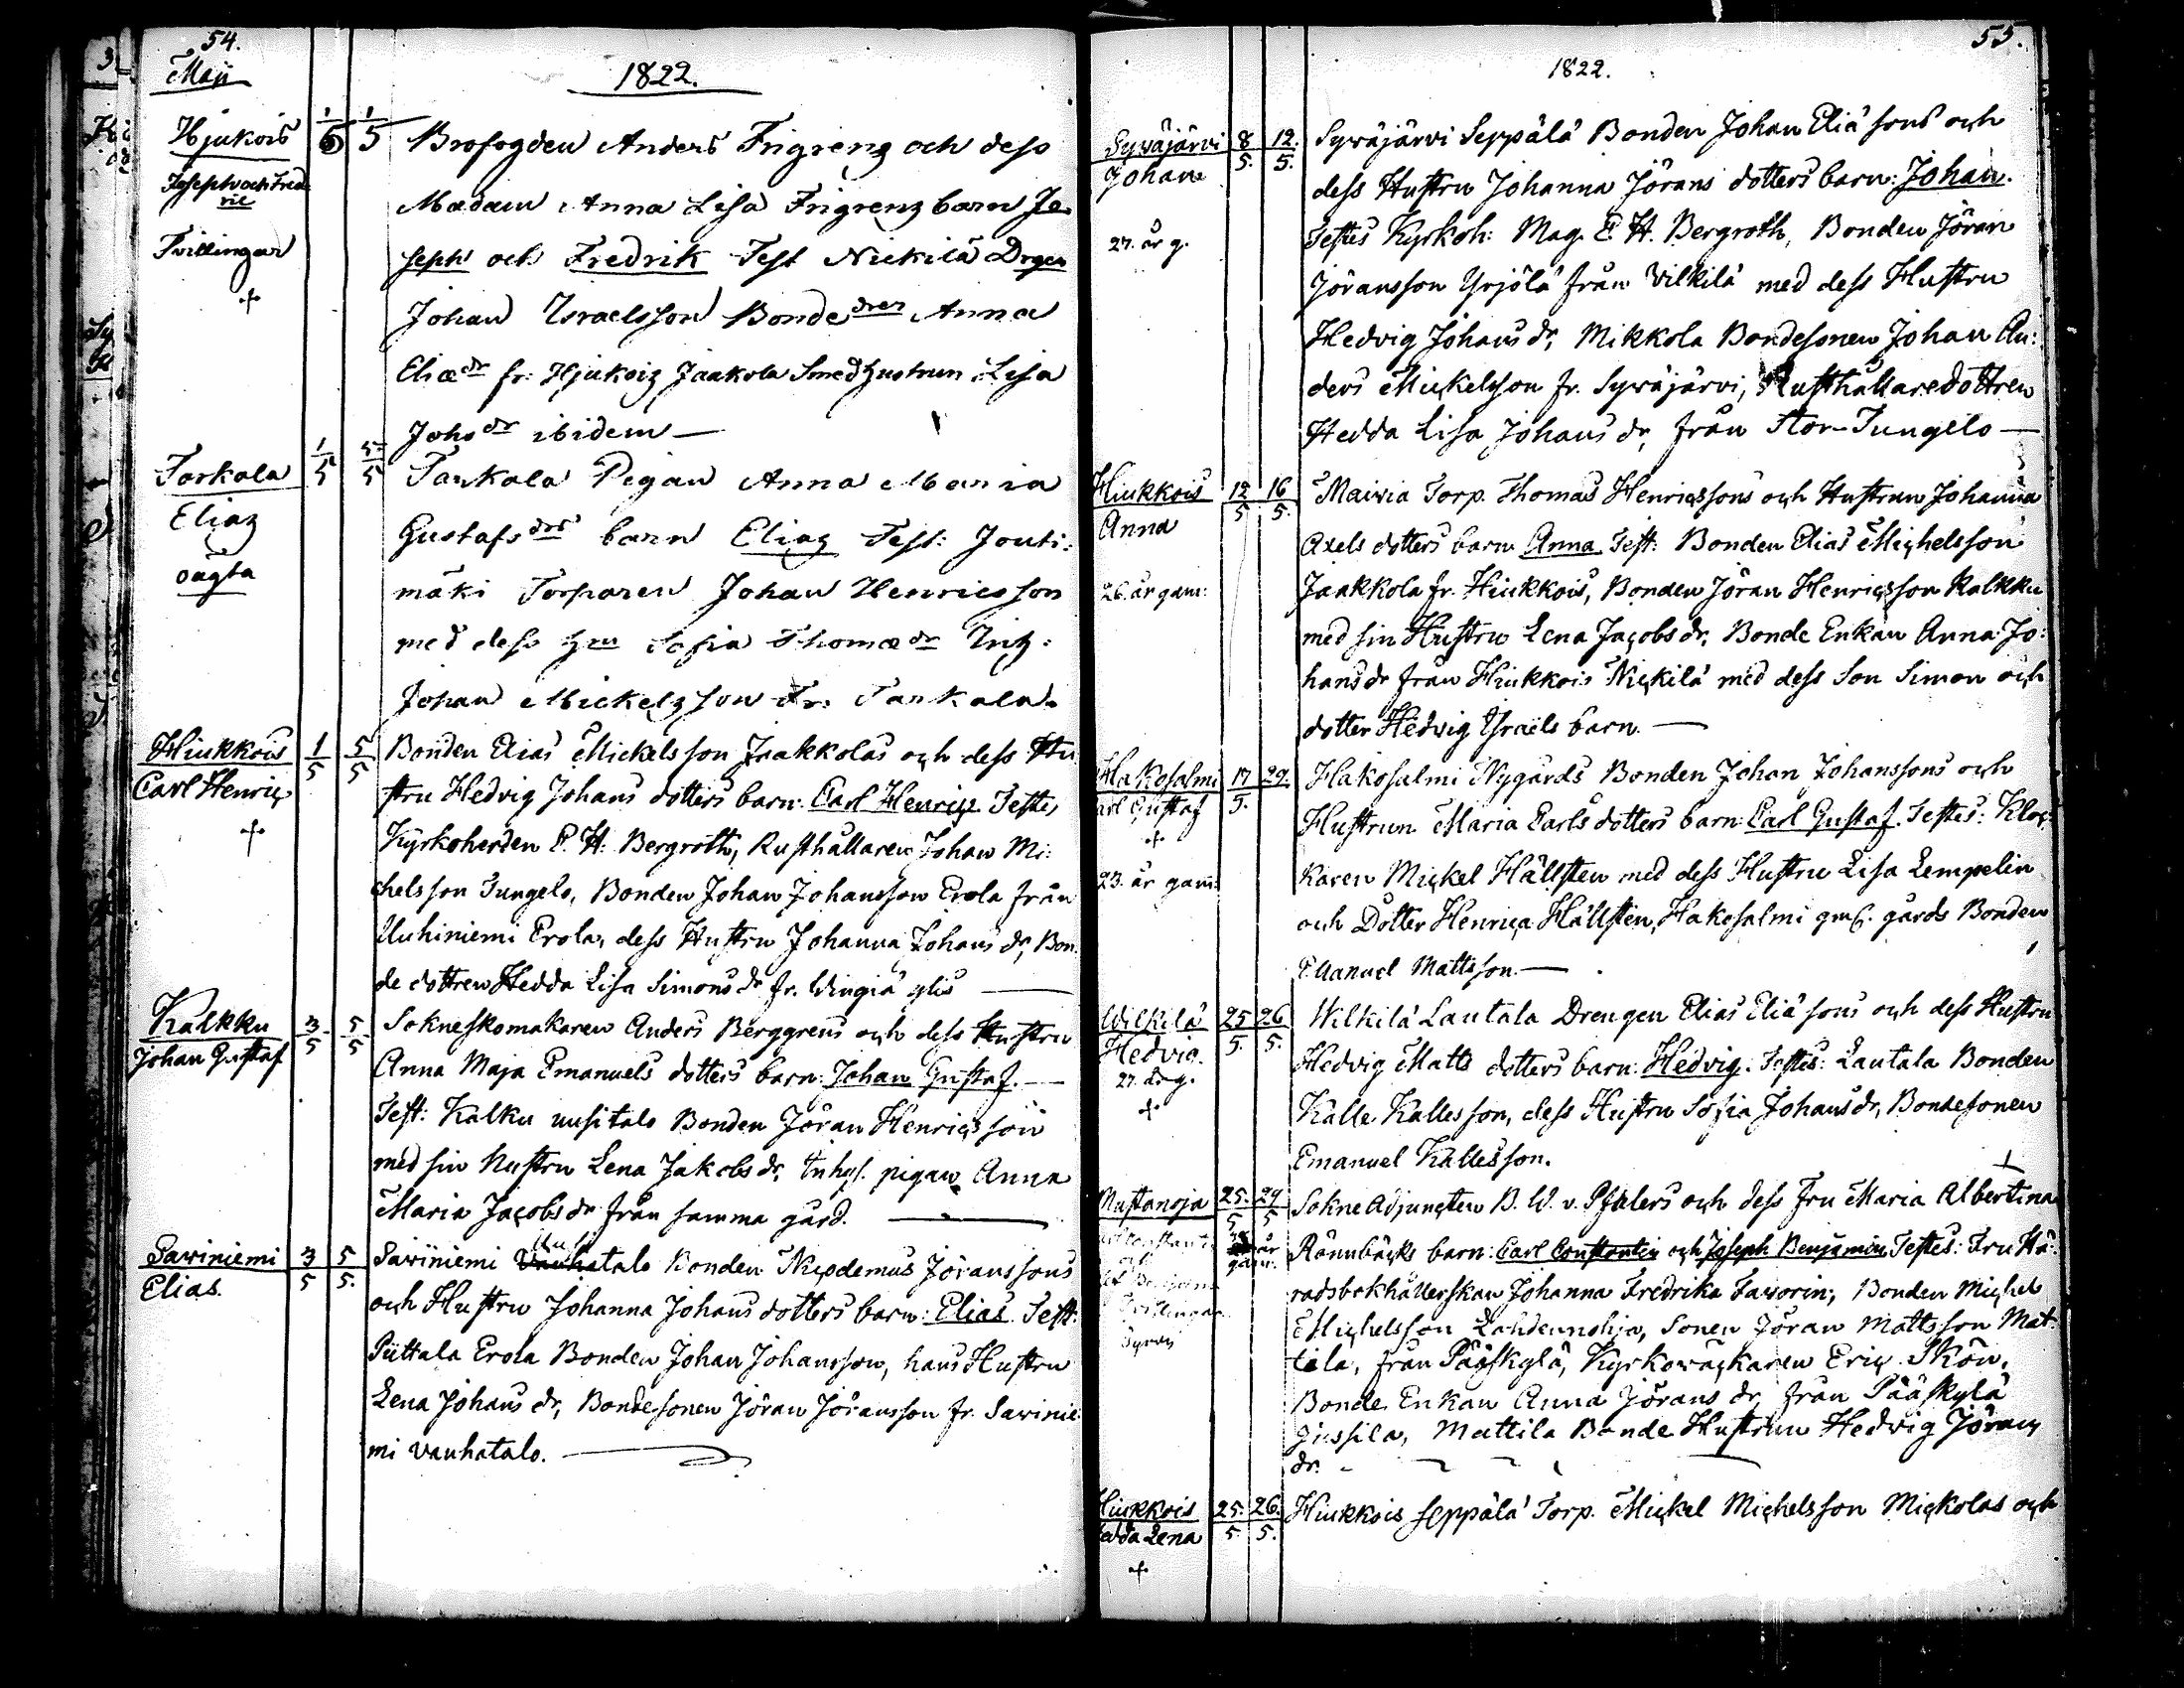 54.
Maji
1822.
Hjukois 1/5 1/5 Brofogden Anders Frigrenz och dess
Joseph och Fred
ric
Madam Anna Lisa Frigrenz barn Jo
Tvillingar
seph och Fredrik Test Nickilä Drgen
Johan Israelsson Bonde drn Anna
Eliæ dr fr: Hjukoiz Jaakola Smedhustrun Lisa
Johs dr ibidem —
Tarkala 1/5 5/5 Tarkala Pigan Anna Maria
Eliaz
Gustafs drs barn Eliaz Test: Jouti:
oägta
mäki Torparen Johan Henricsson
med dess hru Sofia Thomæ dr
Johan Mickelzson fr: Tarkala.
Hiukkois 1/5 5/5 Bonden Elias Mickelsson Jaakkolas och dess Hu
Carl Henric
stru Hedvig Johans dotters barn: Carl Henric Testes
Kyrkoherden E. H. Bergroth, Rusthållaren Johan Mi:
chelsson Tungelo, Bonden Johan Johansson Erola från
Uuhiniemi Erola, dess Hustru Johanna Johans dr, Bon
de dottren Hedda Lisa Simons dr fr.
Kalkku 3/5 5/5 Sokneskomakaren Anders Berggrens och dess Hustru
Johan Gustaf
Anna Maja Emanuels dotters barn: Johan Gustaf. —
Test: Kalku uusitalo Bonden Jöran Henricsson
med sin Hustru Lena Jakobs dr, Inhys. pigan Anna
Maria Jacobs dr från samma gård. —
Sawiniemi 3/5 5/5. Sawiniemi Vanhatalo Bonden Nicodemus Jöranssons
Elias.
och Hustru Johanna Johans dotters barn: Elias. Test:
Püttala Erola Bonden Johan Johansson, hans Hustru
Lena Johans dr, Bondesonen Jöran Jöransson fr. Sawinie
mi vanhatalo.
55.
1822.
Syväjärvi 8/5. 12./5. Syväjärvi Seppälä Bonden Johan Eliä sons och
Johan
dess Hustru Johanna Jörans dotters barn: Johan.
27. år g.
Testes Kyrkoh: Mag. E. H. Bergroth, Bonden Jöran
Jöransson Yrjölä från Vilkilä med dess Hustru
Hedvig Johans dr, Mikkola Bondesonen Johan An:
ders Mickelsson fr. Syväjärvi, Rusthållaredottren
Hedda Lisa Johans dr, från Stor-Tungelo —
Hiukkois 12/5 16/5. Mairia Torp. Thomas Henricssons och Hustrun Johanna
Anna
Axels dotters barn Anna Test: Bonden Elias Michelsson
26. år gam:
Jaakkola fr. Hiukkois, Bonden Jöran Henricsson Kalkku
med sin Hustru Lena Jacobs dr, Bonde Enkan Anna Jo:
hans dr från Hiukkois Nickilä med dess Son Simon och
dotter Hedvig Israels barn. —
Hakosalmi 17/5. 29. Hakosalmi Nygårds Bonden Johan Johanssons och
arl Gustaf
Hustrun Maria Carls dotters barn: Carl Gustaf. Testes: Kloc:
23. år gam:
karen Mickel Hällsten med dess Hustru Lisa Lempelin
och Dotter Henrica Hällsten, Hakosalmi gml. gårds Bonden
Emanuel Mattsson. —
Wilkilä 25/5. 26/5. Wilkilä Lautala Drengen Elias Eliä sons och dess Hustru
Hedvig.
27. år g.
Hedvig Matts dotters barn: Hedvig. Testes: Lautala Bonden
Kalle Kallesson, dess Hustru Sofia Johans dr, Bondesonen
Emanuel Kallesson.
Mustanoja 25./5 29/5 Sokne Adjuncten B. W. v. Pfalers och dess Fru Maria Albertina
år
gam.
Tvillingar
Rönnbäcks barn: Carl Constantin och Joseph Benjamin Testes: Fru Hä:
radsbokhållerskan Johanna Fredrika Favorin, Bonden Michel
Michelsson Lahdennohja, Sonen Jöran Mattsson Mat:
tila, från Pääskylä, Kyrkoväckaren Eric Skön,
Bonde Enkan Anna Jörans dr från Pääskylä
Jussila, Mattila Bonde Hustrun Hedvig Jörans
dr.
Hiukkois 25./5. 26./5. Hiukkois Seppälä Torp. Mickel Michelsson Mickolas och
edda Lena